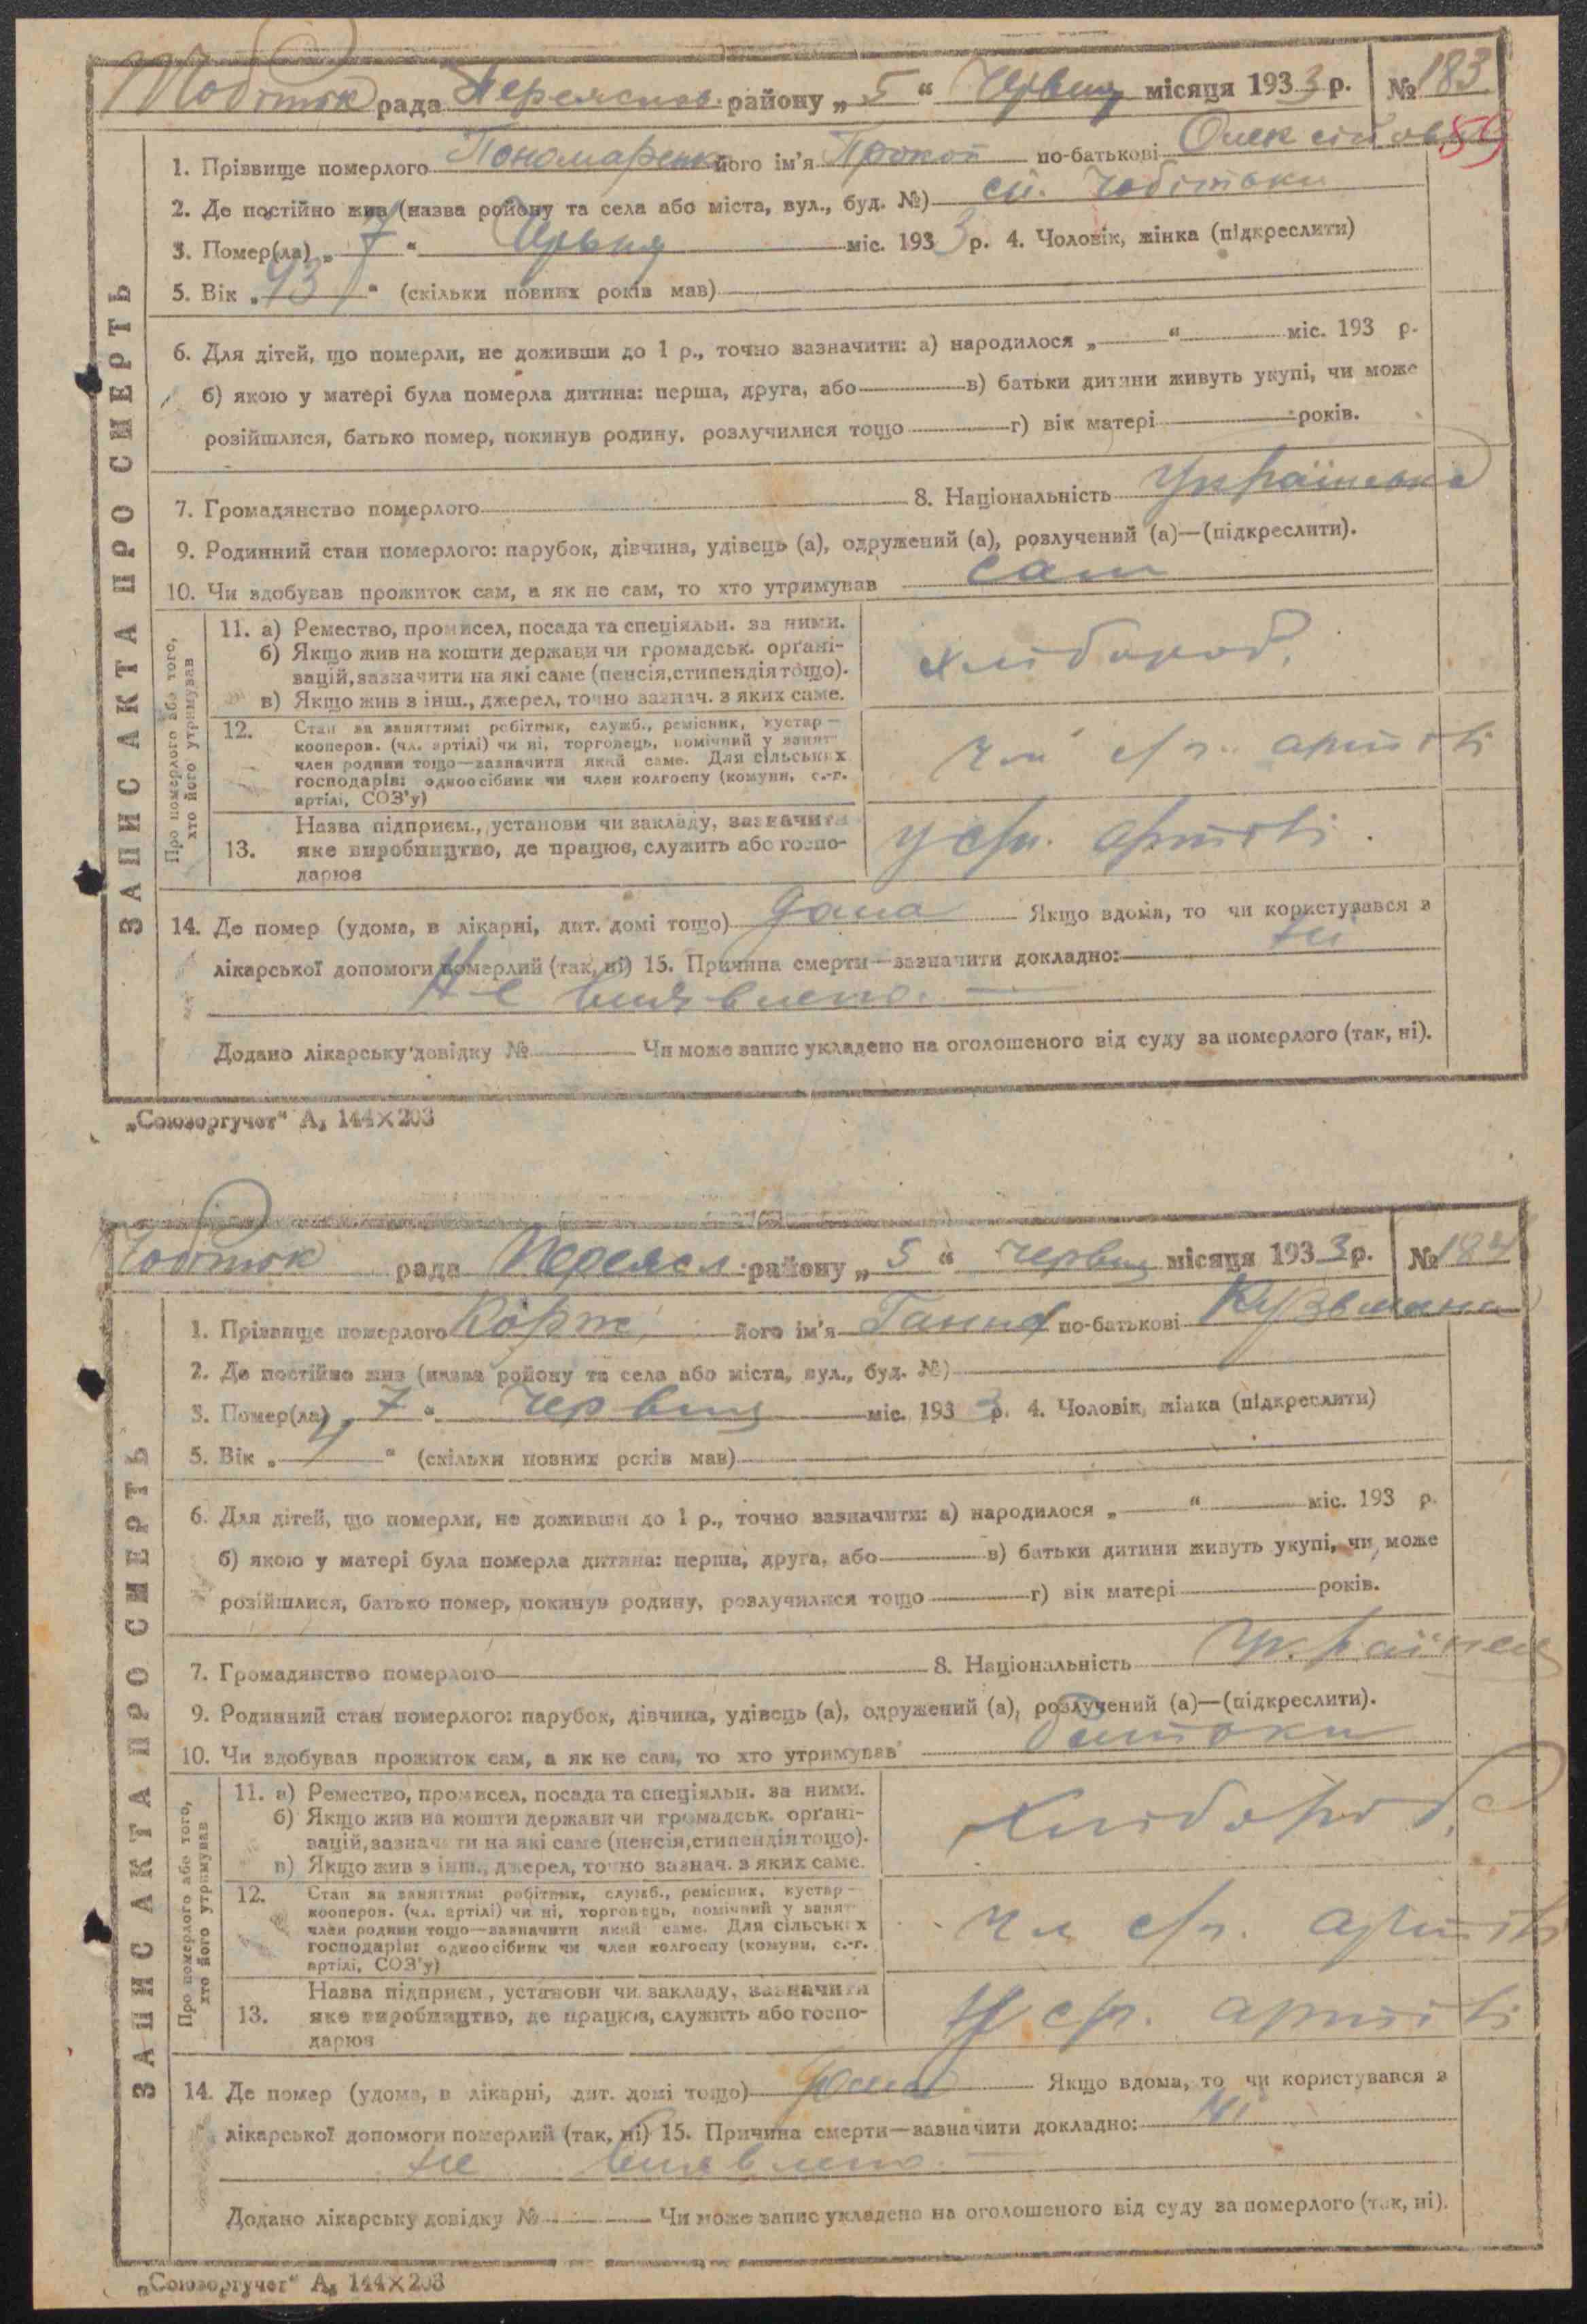 Чобіток рада Переяслов. району „ 5 “ Червня місяця 1933 р. № 183
59
ЗАПИС АКТА ПРО СМЕРТЬ
1. Прізвище померлого Пономаренко його ім'я Прокоп по-батькові Олексійов
2. Де постійно жив (назва району та села або міста, вул., буд. №) с. Чобітьки
3. Помер(ла) „ 7 “ Червня міс. 1933 р. 4. Чоловік, жінка (підкреслити)
5. Вік „ “ (скільки повних років мав)
6. Для дітей, що померли, не доживши до 1 р., точно зазначити: а) народилося „ “ міс. 193 р.
б) якою у матері була померла дитина: перша, друга, або в) батьки дитини живуть укупі, чи може
розійшлися, батько помер, покинув родину, розлучилися тощо г) вік матері років.
7. Громадянство померлого 8. Національність Українська
9. Родинний стан померлого: парубок, дівчина, удівець (а), одружений (а), розлучений (а)—(підкреслити).
10. Чи здобував прожиток сам, а як не сам, то хто утримував сам
Про померлого або того,
хто його утримував
11. а) Ремество, промисел, посада та спеціяльн. за ними.
б) Якщо жив на кошти держави чи громадськ. орґані-
зацій, зазначити на які саме (пенсія, стипендія тощо).
в) Якщо жив з інш., джерел, точно зазнач. з яких саме.
хлібороб.
12. Стан за заняттям: робітник, служб., ремісник, кустар—
кооперов. (чл. артілі) чи ні, торговець, помічний у занят-
член родини тощо—зазначити який саме. Для сільських
господарів: одноосібник чи член колгоспу (комуни, с.-г.
артілі, СОЗ'у)
чл с/г. артілі
13. Назва підприєм., установи чи закладу, зазначити
яке виробництво, де працює, служить або госпо-
дарює
у с/г. артілі.
14. Де помер (удома, в лікарні, дит. домі тощо) дома Якщо вдома, то чи користувався з
лікарської допомоги померлий (так, ні) 15. Причина смерти—зазначити докладно: ні
Не виявлено. —
Додано лікарську довідку № Чи може запис укладено на оголошеного від суду за померлого (так, ні).
„Союзоргучет“ А₅ 144×203
Чобіток рада Переясл. району „ 5 “ червня місяця 1933 р. № 184
ЗАПИС АКТА ПРО СМЕРТЬ
1. Прізвище померлого Корж його ім'я Ганна по-батькові Кузьмовна
2. Де постійно жив (назва району та села або міста, вул., буд. №)
3. Помер(ла) „ 7 “ Червня міс. 1933 р. 4. Чоловік, жінка (підкреслити)
5. Вік „ 4 “ (скільки повних років мав)
6. Для дітей, що померли, не доживши до 1 р., точно зазначити: а) народилося „ “ міс. 193 р.
б) якою у матері була померла дитина: перша, друга, або в) батьки дитини живуть укупі, чи може
розійшлися, батько помер, покинув родину, розлучилися тощо г) вік матері років.
7. Громадянство померлого 8. Національність
9. Родинний стан померлого: парубок, дівчина, удівець (а), одружений (а), розлучений (а)—(підкреслити).
10. Чи здобував прожиток сам, а як не сам, то хто утримував батьки
Про померлого або того,
хто його утримував
11. а) Ремество, промисел, посада та спеціяльн. за ними.
б) Якщо жив на кошти держави чи громадськ. орґані-
зацій, зазначити на які саме (пенсія, стипендія тощо).
в) Якщо жив з інш., джерел, точно зазнач. з яких саме.
Хлібороб.
12. Стан за заняттям: робітник, служб., ремісник, кустар—
кооперов. (чл. артілі) чи ні, торговець, помічний у занят-
член родини тощо—зазначити який саме. Для сільських
господарів: одноосібник чи член колгоспу (комуни, с.-г.
артілі, СОЗ'у)
чл с/г. артілі
13. Назва підприєм., установи чи закладу, зазначити
яке виробництво, де працює, служить або госпо-
дарює
У с/г. артілі
14. Де помер (удома, в лікарні, дит. домі тощо) дома Якщо вдома, то чи користувався з
лікарської допомоги померлий (так, ні) 15. Причина смерти—зазначити докладно: Ні
не виявлено. —
Додано лікарську довідку № Чи може запис укладено на оголошеного від суду за померлого (так, ні).
„Союзоргучет“ А₅ 144×203